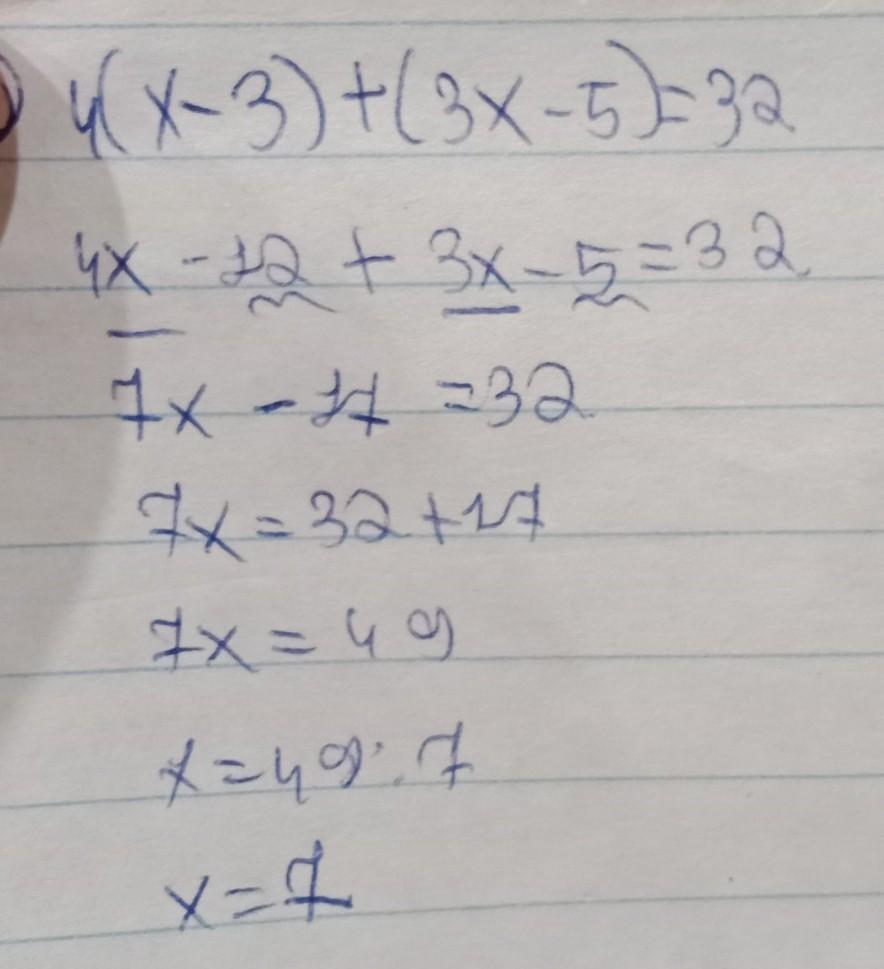 4(x-3)+(3x-5)=32
4x-12+3x-5=32
7x-17=32
7x=32+17
7x=49
x=49:7
x=7